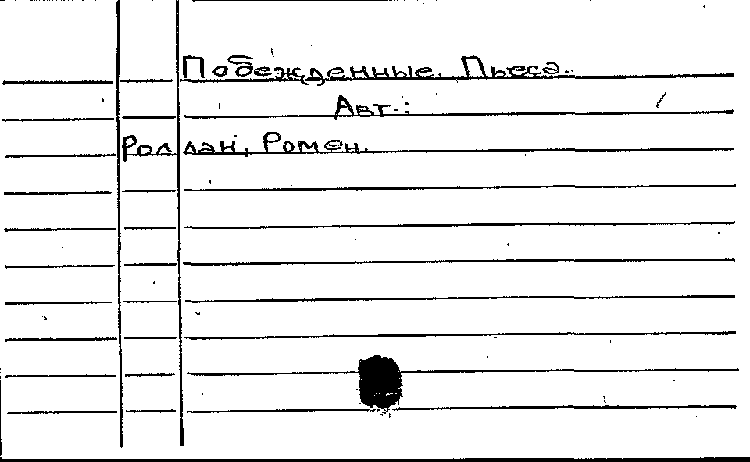 Побежденные. Пьеса.
Авт.:
Роллан, Ромен.